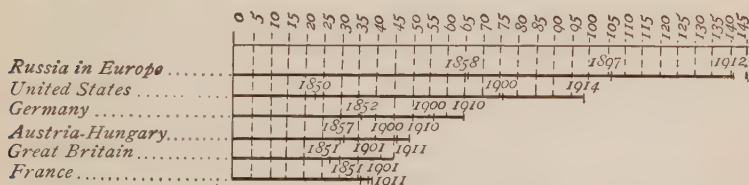 0 5 10 15 20 25 30 35 40 45 50 55 60 65 70 75 80 85 90 95 100 105 110 115 120 125 130 135 140 145
Russia in Europe 1858 1897 1912
United States 1850 1900 1914
Germany 1852 1900 1910
Austria-Hungary 1857 1900 1910
Great Britain 1851 1901 1911
France 1851 1901
1911